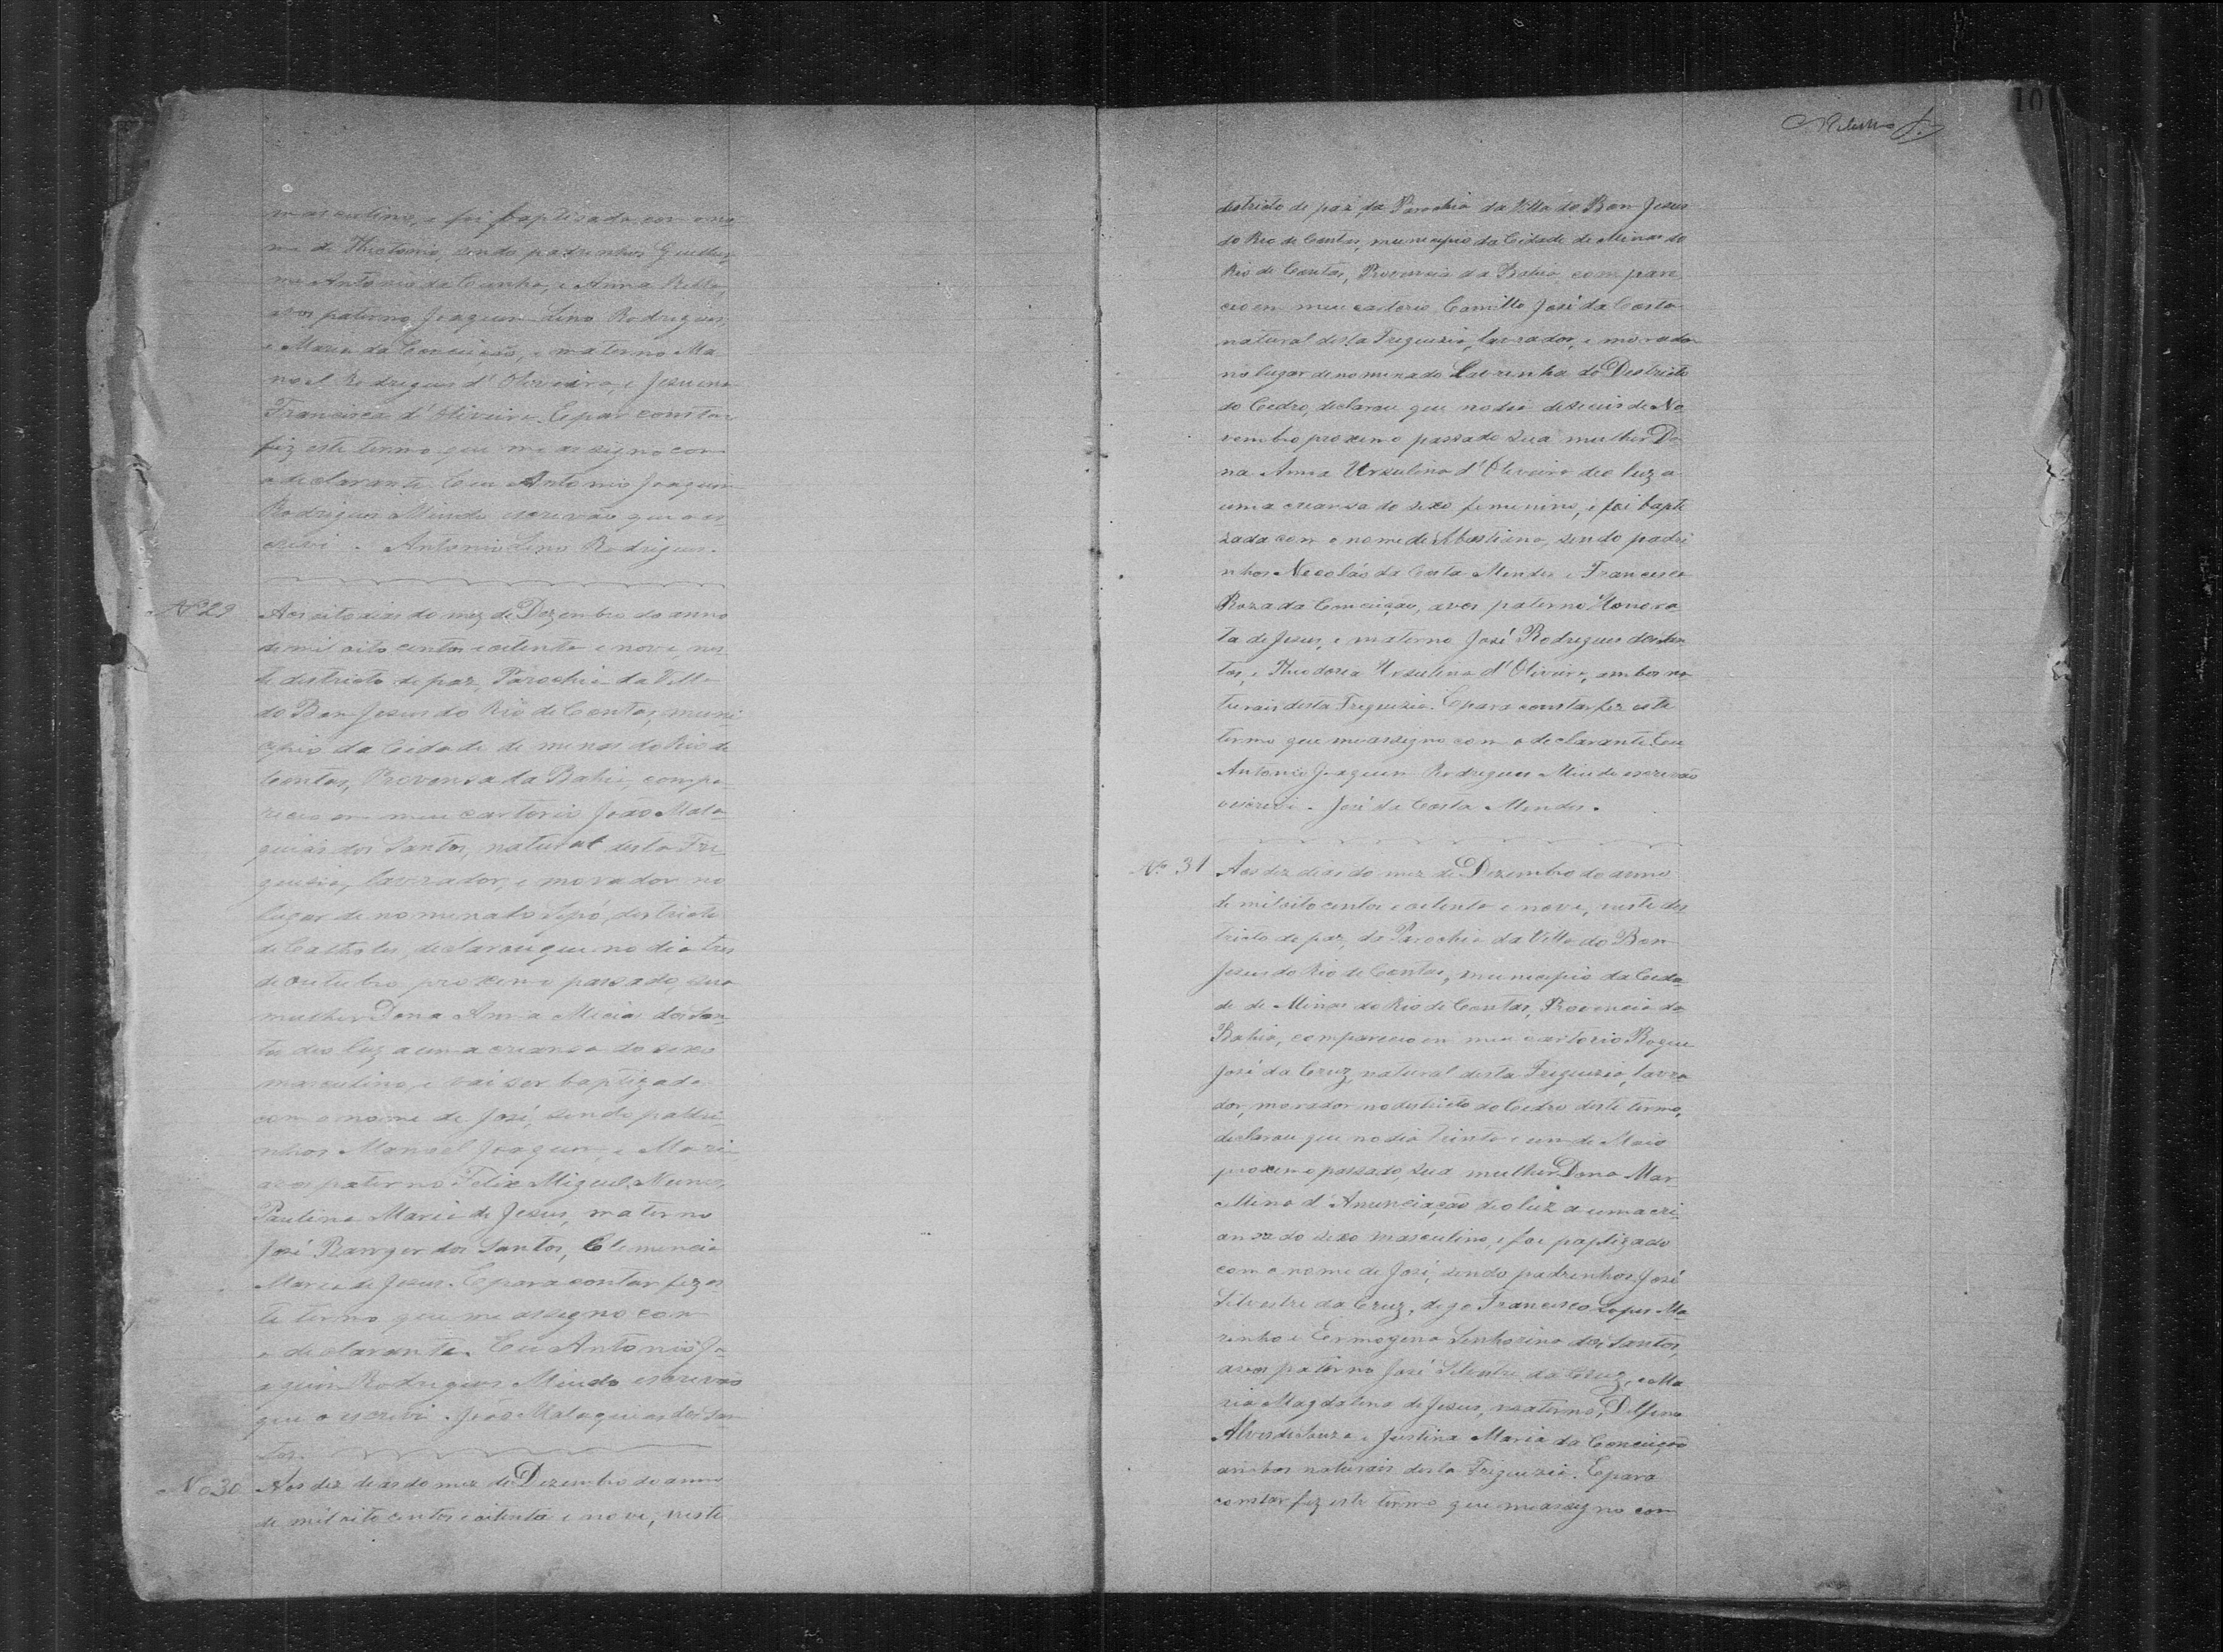 masculino, e foi baptisado com o no
me de Thiotonio, sendo padrinhos Guilher
me Antonio da Cunha, e Anna Bella,
avos paterno Joaquim Lino Rodrigues,
e Maria da Conceição, e materno Ma
noel Rodrigues d'Oliveira, e Jesuina
Francisca d'Oliveira. E par constar
fiz este termo que me assigno com
o declarante. Eu Antonio Joaquim
Rodrigues Miudo escrevão que o es
crevi. Antonio Lino Rodrigues.
Nº 29
Aos oito dias do mez de Dezembro do anno
de mil oito centos e oitenta e nove nes
te districto de paz, Parochia da Villa
do Bom Jesus do Rio de Contas, muni
cipio da Cidade de minas do Rio de
Contas, Provensa da Bahia, compa
receo em meu cartorio João Mala
quias dos Santos, natural desta Fre
guesia, lavrador, e morador no
lugar de nominado Sipó, districto
de Catholes, declarou que no dia tres
de outubro proximo passado, sua
mulher Dona Anna Micia dos San
tos deo luz a uma criansa do sexo
masculino, e vai ser baptizado
com o nome de José, sendo padri
nhos Manoel Joaquim, e Maria
avos paterno Felix Miguel Nunes,
Paulina Maria de Jesus, materno
José Ranger dos Santos, Clemencia
Maria de Jesus. E para contar fiz es
te termo que me assigno com
o declarante. Eu Antonio Jo
aquim Rodrigues Miudo escrevão
que o escrevi. João Malaquias dos San
tos.
No 30
Aos dez dias do mez de Dezembro do anno
de mil oito centos e oitenta e nove, neste
10
districto de paz, da Parochia da Villa do Bom Jesus
do Rio de Contas, municipio da Cidade de Minas do
Rio de Contas, Provencia da Bahia, compare
ceo em meu cartorio Camillo José da Costa
natural desta Freguezia, lavrador, e morador
no lugar denominado Lavrinha do Destricto
do Cedro, declarou que no dia deseseis de No
vembro proximo passado sua mulher Do
na Anna Ursulina d'Oliveira deo luz a
uma criansa do sexo feminino, e foi bapti
zada com o nome de Sbastiana, sendo padri
nhos Necoláo da Costa Mendes e Francisca
Roza da Conceição, avos paterno Honora
ta de Jesus, e materno José Rodrigues dos San
tos, e Thiodora Ursulina d'Oliveira, ambos na
turais desta Freguezia. E para constar fiz este
termo que me assigno com o declarante. Eu
Antonio Joaquim Rodrigues Miudo escrevão
o escrevi. José da Costa Mendes.
Nº 31
Aos dez dias do mez de Dezembro do anno
de mil oito centos e oitenta e nove, neste dis
tricto de paz, da Parochia da Villa do Bom
Jesus do Rio de Contas, municipio da Cida
de de Minas do Rio de Contas, Provencia da
Bahia, compareceo em meu cartorio Roque
José da Cruz, natural desta Freguezia, lavra
dor, morador no destricto do Cedro deste termo,
declarou que no dia trinta e um de Maio
proximo passado, sua mulher Dona Mar
cellina d'Anunciação deo luz a uma cri
ansa do sexo masculino, e foi paptizado
com o nome de José, sendo padrinhos José
Silvestre da Cruz, digo Francisco Lopes Ma
rinho e Ermogena Senhorina dos Santos,
avos paterno José Silvestre da Cruz, e Ma
ria Magdalena de Jesus, materno, Delfino
Alves de Souza e Justina Maria da Conceição
ambos naturais desta Freguezia. E para
constar fiz este termo que me assigno com